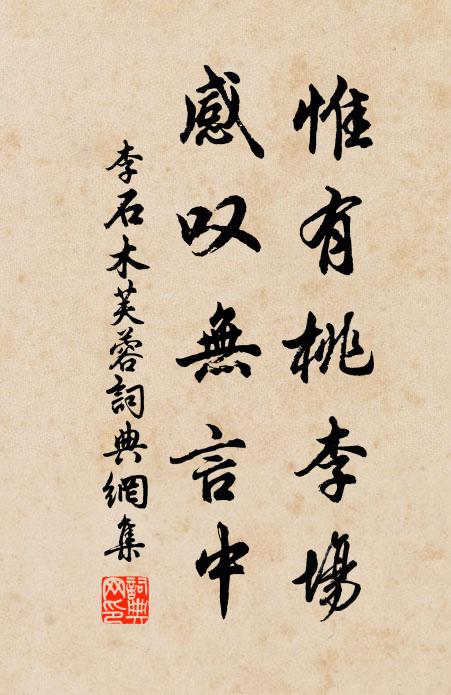 惟有桃李場
感叹無言中
李石木芙蓉詞典網集
詞典網印